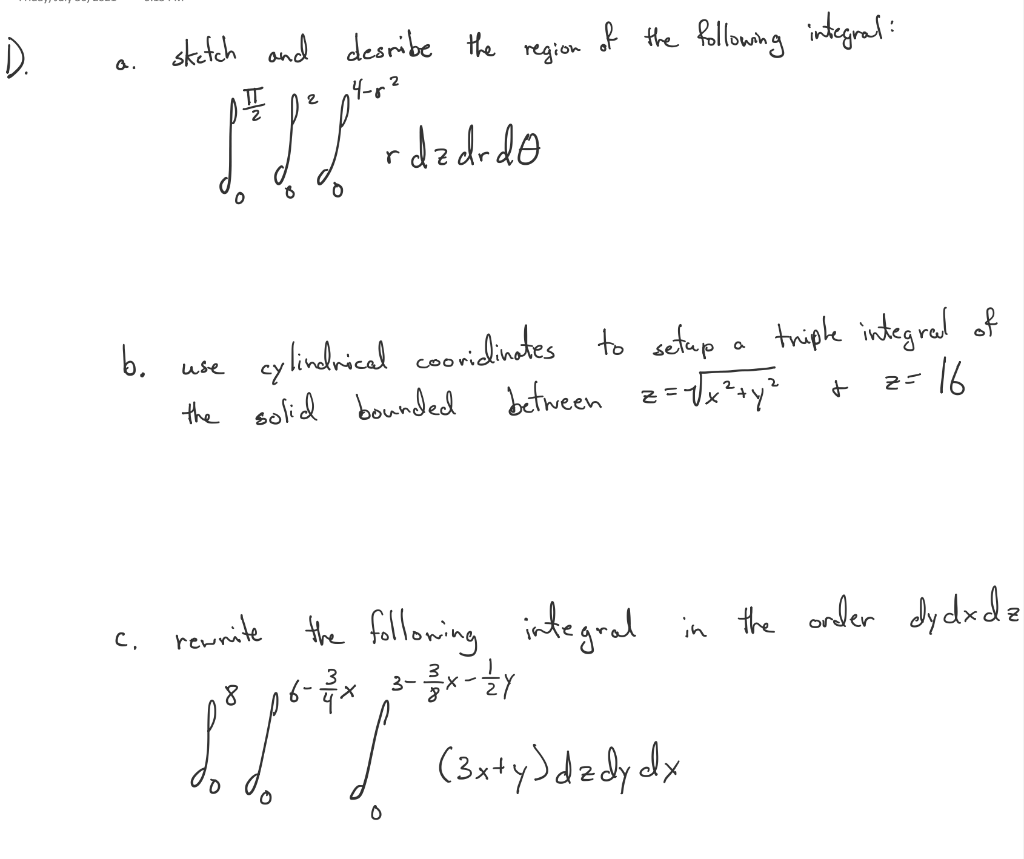 D. a. sketch and desribe the region of the following integral:
∫₀^(π/2) ∫₀^2 ∫₀^(4-r²) r dz dr dθ
b. use cylindrical cooridinates to setup a triple integral of
the solid bounded between z = √(x²+y²) + z = 16
c. rewrite the following integral in the order dy dx dz
∫₀^8 ∫₀^(6-3/4x) ∫₀^(3-3/8x-1/2y) (3x+y) dz dy dx